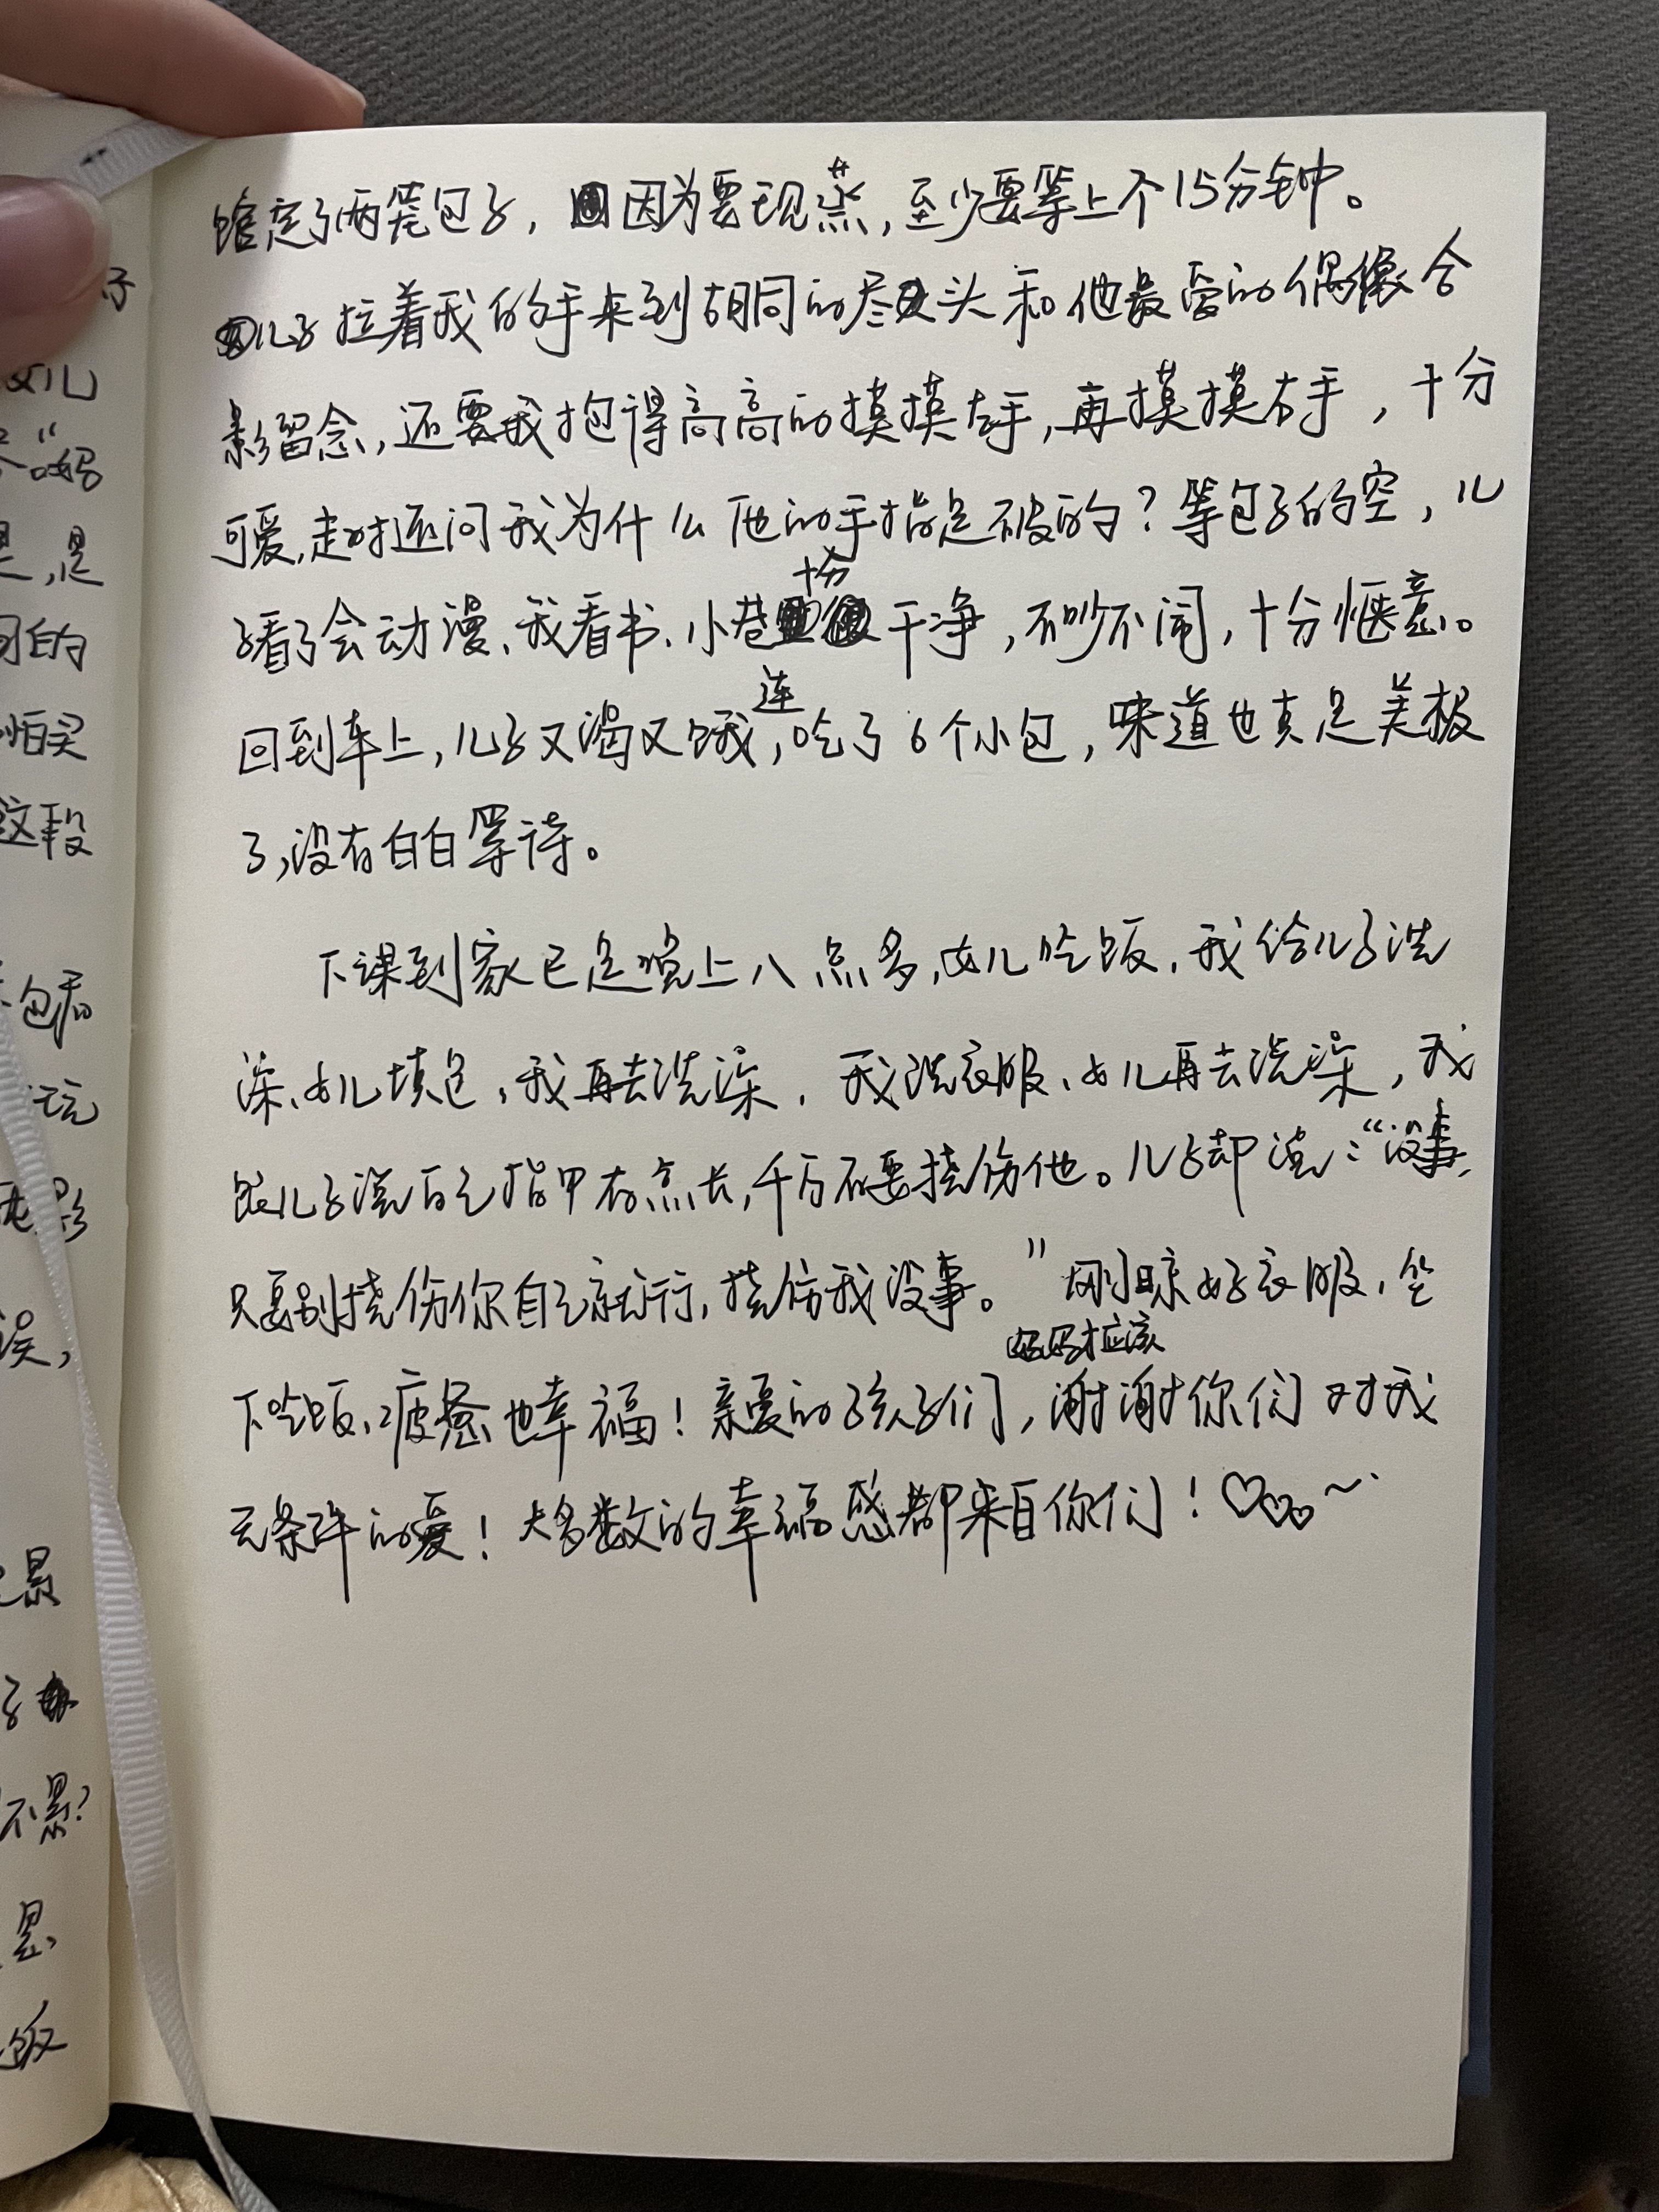 子
女儿
"妈
是,是
的
怕买
这段
包看
玩
影
误,
累
子
不累?
累
饭
馆定了两笼包子,因为要现蒸,至少要等上个15分钟。
儿子拉着我的手来到胡同的尽头和他最爱的偶像合
影留念,还要我抱得高高的摸摸左手,再摸摸右手,十分
可爱,走时还问我为什么他的手指是破的?等包子的空,儿
子看了会动漫、我看书、小巷十分干净,不吵不闹,十分惬意。
回到车上,儿子又渴又饿,连吃了6个小包,味道也真是美极
了,没有白白等待。
下课到家已是晚上八点多,女儿吃饭,我给儿子洗
澡、女儿填色,我再去洗澡,我洗衣服、女儿再去洗澡,我
跟儿子说自己指甲有点长,千万不要挠伤他。儿子却说:“没事,
只要别挠伤你自己就行,挠伤我没事。”刚晾好衣服,坐
下吃饭、疲惫也幸福!亲爱的孩子们,谢谢你们对我
妈妈应该
无条件的爱!大多数的幸福感都来自你们!♡♡♡~